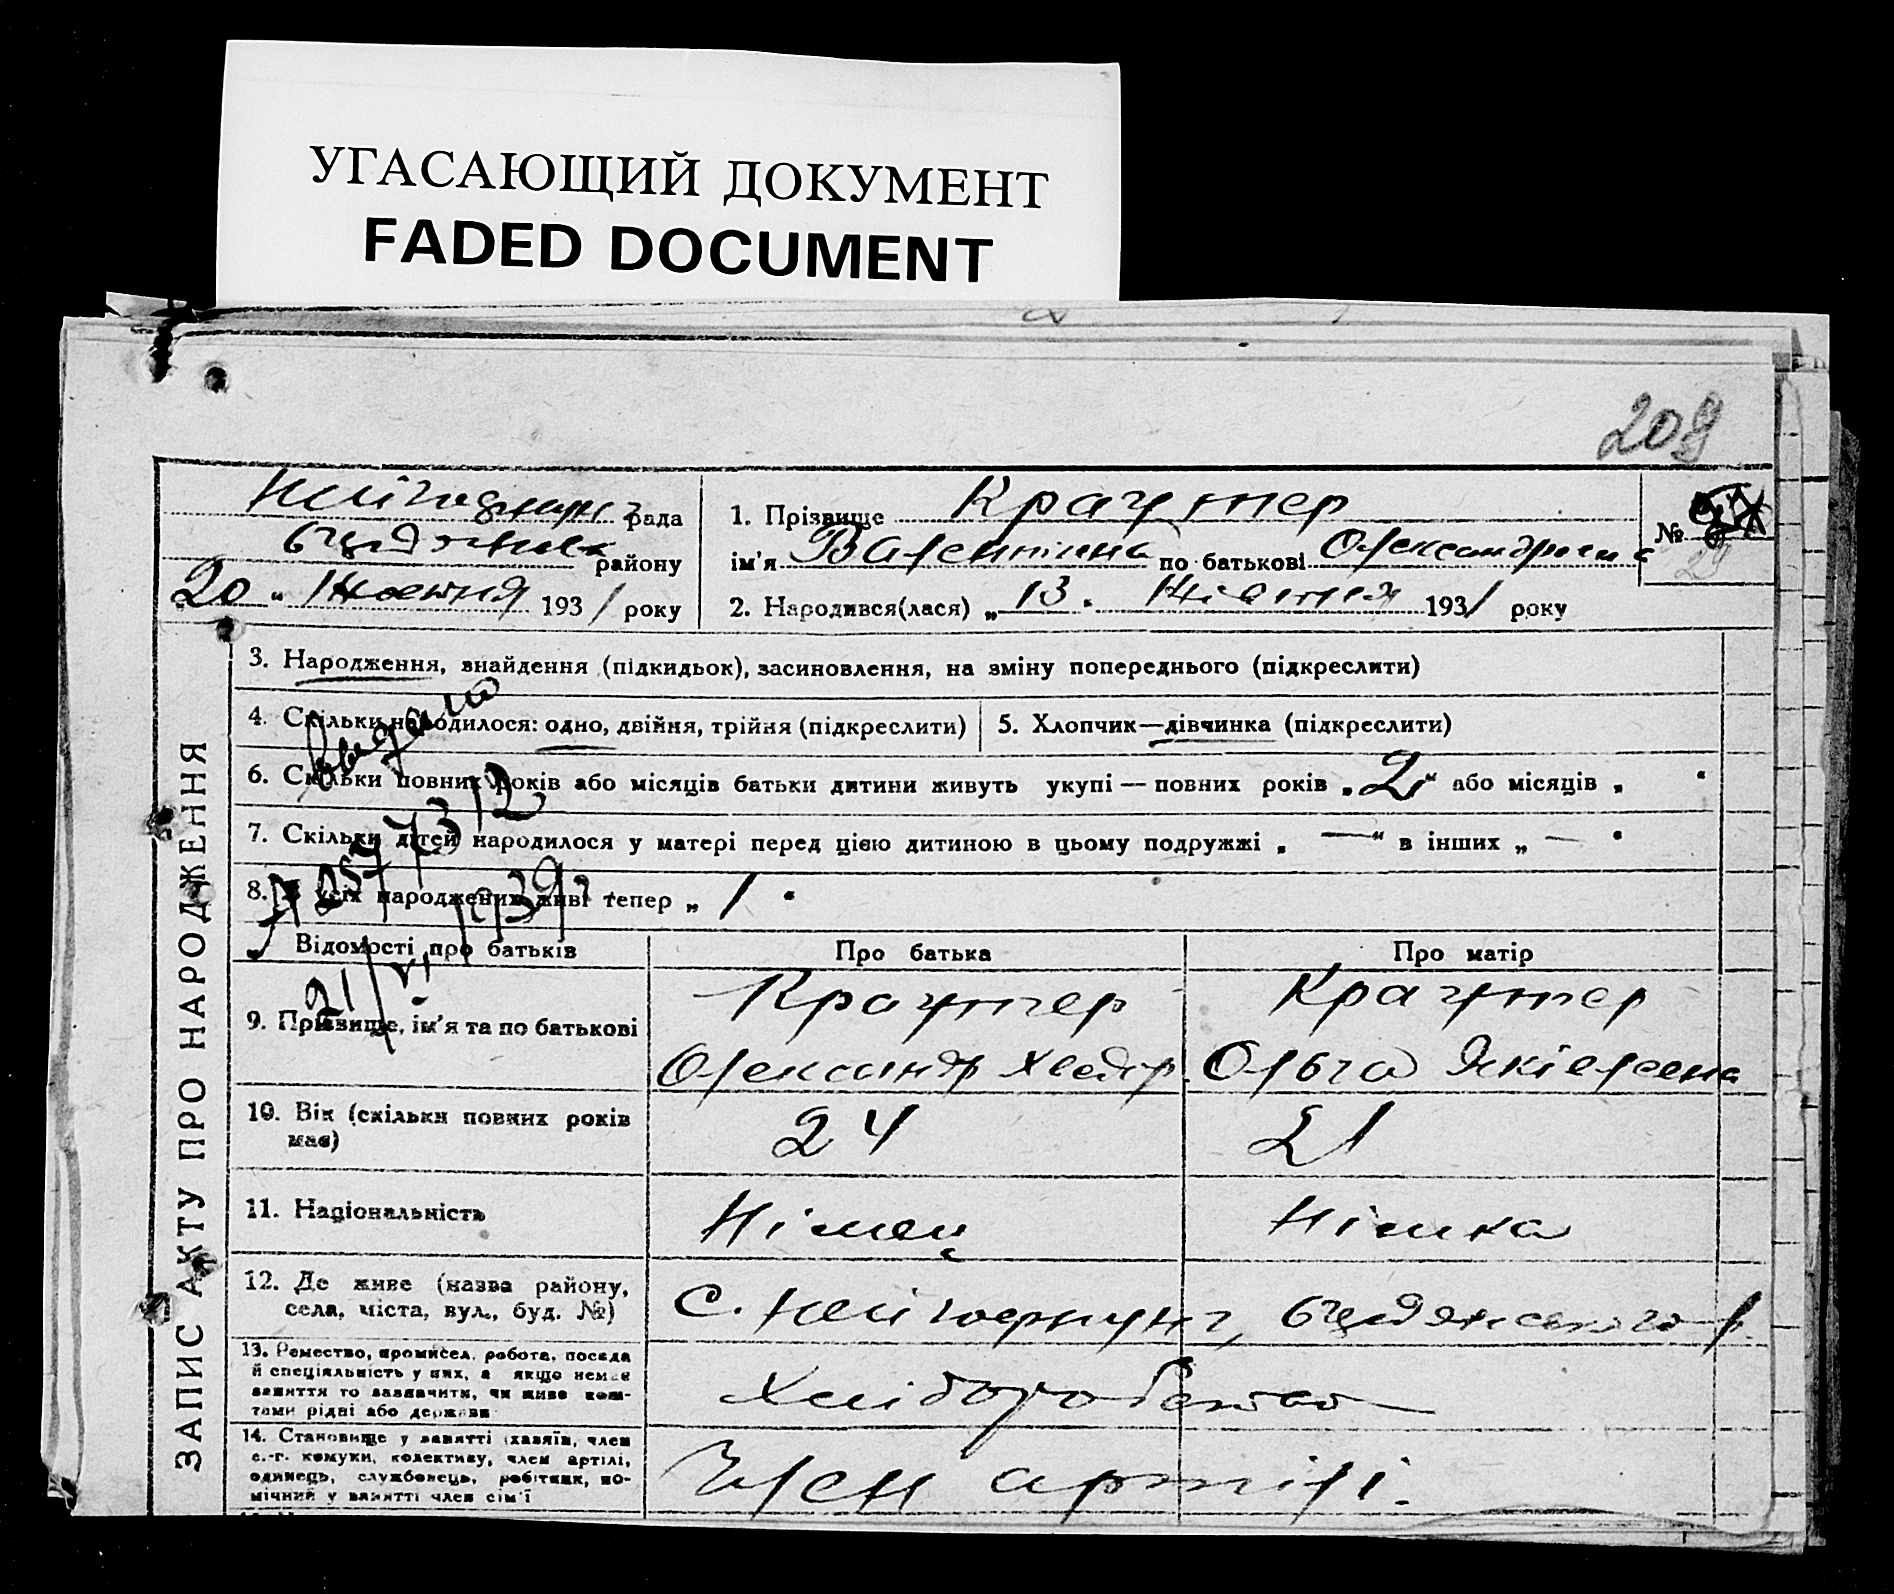 УГАСАЮЩИЙ ДОКУМЕНТ
FADED DOCUMENT
209
ЗАПИС АКТУ ПРО НАРОДЖЕННЯ
рада
району
„20“ Жовтня 1931 року
1. Прізвище Краутер
ім'я Валентина по батькові Олександровна
№
29
2. Народився(лася) „13“ Жовтня 1931 року
3. Народження, знайдення (підкидьок), засиновлення, на зміну попереднього (підкреслити)
4. Скільки народилося: одно, двійня, трійня (підкреслити)
5. Хлопчик—дівчинка (підкреслити)
6. Скільки повних років або місяців батьки дитини живуть укупі — повних років „2“ або місяців „ “
7. Скільки дітей народилося у матері перед цією дитиною в цьому подружжі „ — “ в інших „ — “
8. З усіх народжених живі тепер „1“
Видано
21/VI 1939
Відомості про батьків
Про батька
Про матір
9. Прізвище, ім'я та по батькові
Краутер
Олександр Хведор
Краутер
Ольга Якіевлевна
10. Вік (скільки повних років має)
24
21
11. Національність
Німец
Німка
12. Де живе (назва району, села, міста, вул., буд. №)
с.
13. Ремество, промисел, робота, посада й спеціяльність у них, а якщо немає заняття то зазначити, чи живе коштами рідні або держави
Хліборобство
14. Становище у занятті (хазяїн, член с.-г. комуни, колективу, член артілі, одинець, службовець, робітник, помічний у занятті член сім'ї
Член артілі.